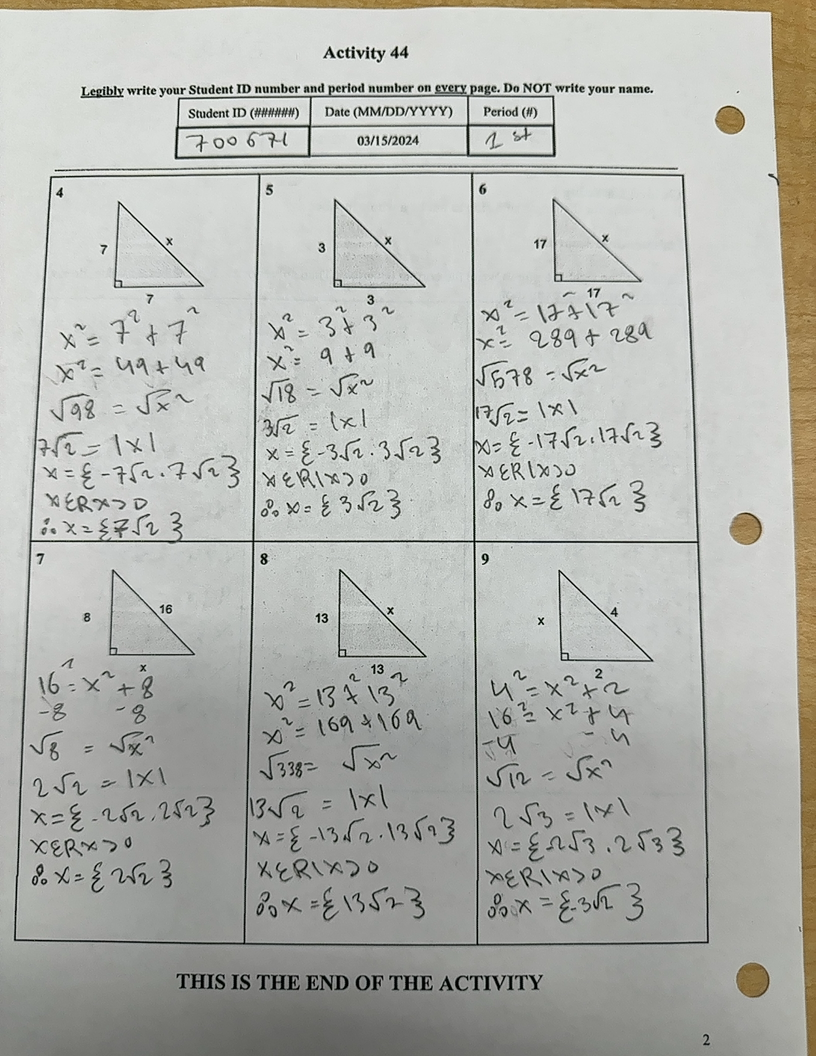 Activity 44
Legibly write your Student ID number and period number on every page. Do NOT write your name.
Student ID (######) Date (MM/DD/YYYY) Period (#)
700671 03/15/2024 1st
4
7
x
7
x² = 7² + 7²
x² = 49 + 49
√98 = √x²
7√2 = |x|
x = {-7√2, 7√2}
x∈R x>0
∴ x = {7√2}
5
3
x
3
x² = 3² + 3²
x² = 9 + 9
√18 = √x²
3√2 = |x|
x = {-3√2, 3√2}
x∈R|x>0
∴ x = {3√2}
6
17
x
17
x² = 17² + 17²
x² = 289 + 289
√578 = √x²
17√2 = |x|
x = {-17√2, 17√2}
x∈R|x>0
∴ x = {17√2}
7
8
16
x
16² = x² + 8
-8 -8
√8 = √x²
2√2 = |x|
x = {-2√2, 2√2}
x∈R x>0
∴ x = {2√2}
8
13
x
13
x² = 13² + 13²
x² = 169 + 169
√338 = √x²
13√2 = |x|
x = {-13√2, 13√2}
x∈R|x>0
∴ x = {13√2}
9
x
4
2
4² = x² + 2
16² = x² + 4
-4 -4
√12 = √x²
2√3 = |x|
x = {-2√3, 2√3}
x∈R|x>0
∴ x = {-3√2}
THIS IS THE END OF THE ACTIVITY
2